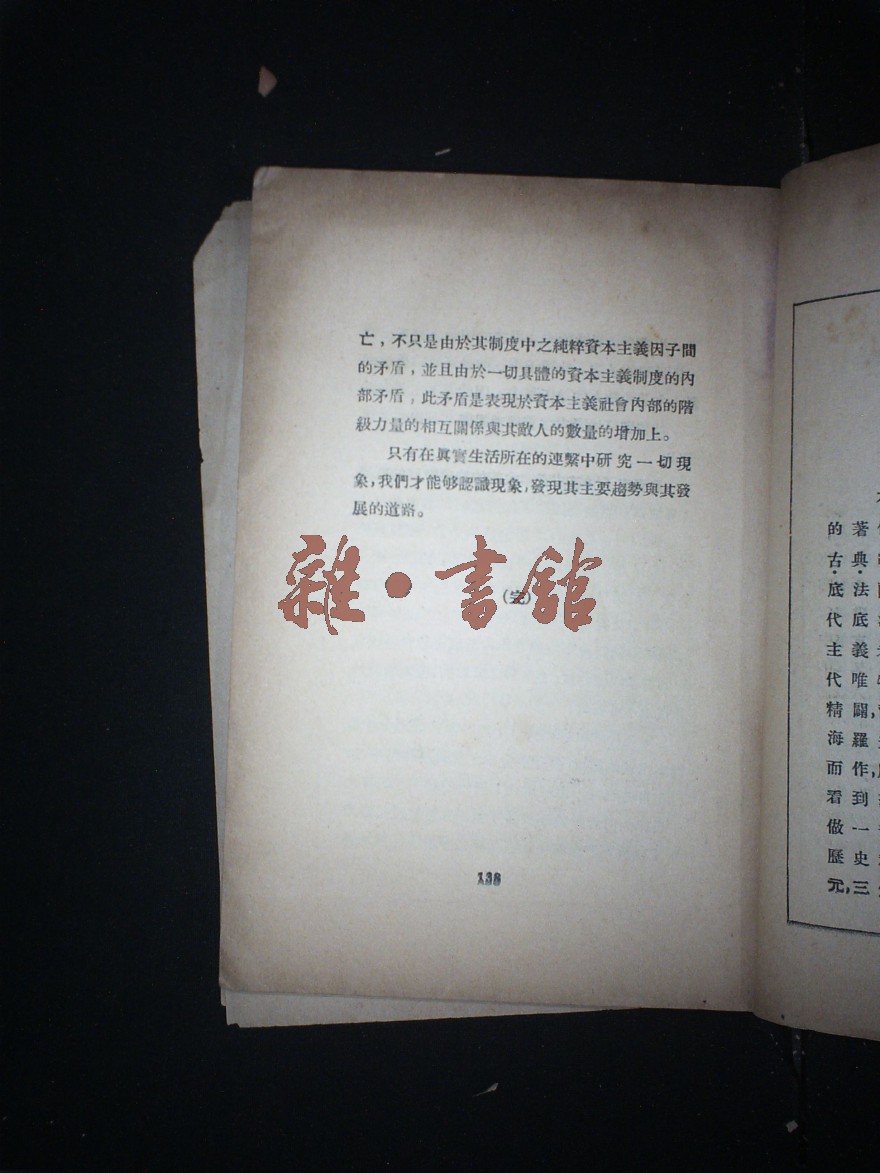 亡，不只是由於其制度中之純粹資本主義因子間
的矛盾，並且由於一切具體的資本主義制度的內
部矛盾，此矛盾是表現於資本主義社會內部的階
級力量的相互關係與其敵人的數量的增加上。
只有在眞實生活所在的連繫中硏究一切現
象，我們才能够認識現象，發現其主要趨勢與其發
展的道路。
雜·書館
(完)
138
的著
古典
底法
代底
主義
代唯
精闢，
海羅
而作，
看到
做一
歷史
元，三